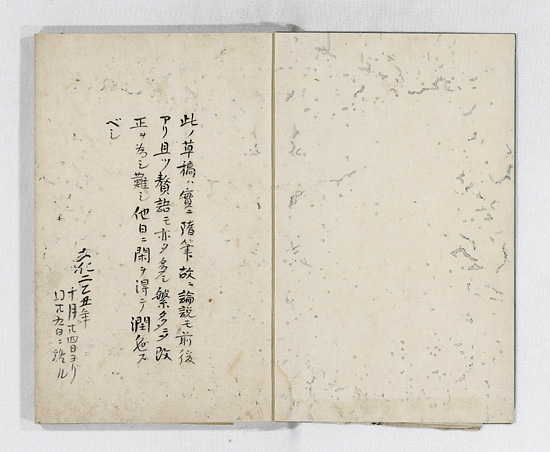 此ノ草稿ハ實ニ隨筆故ニ論説モ前後
アリ且ツ贅語モ亦タ多シ繁多ニテ改
正ヲ為シ難シ他日ニ閑ヲ得テ潤色ス
ベシ
文化二乙丑年
十月廿四日ヨリ
廿九日ニ終ル